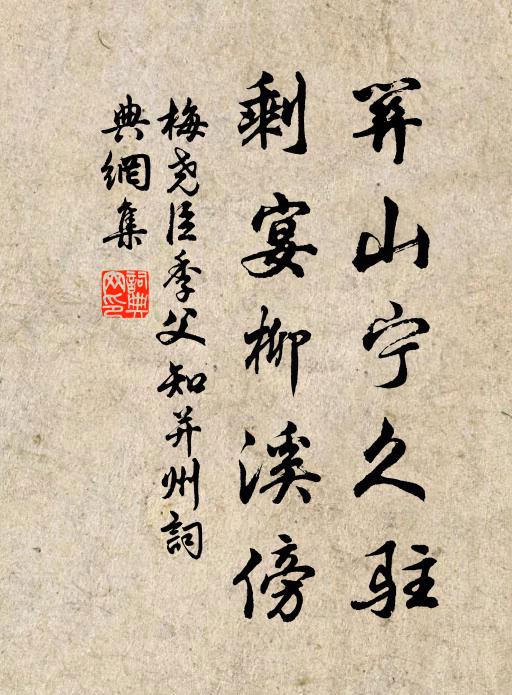 笄山宁久驻
剩宴柳溪傍
梅尧臣季父知并州詞
典網集
詞典网印